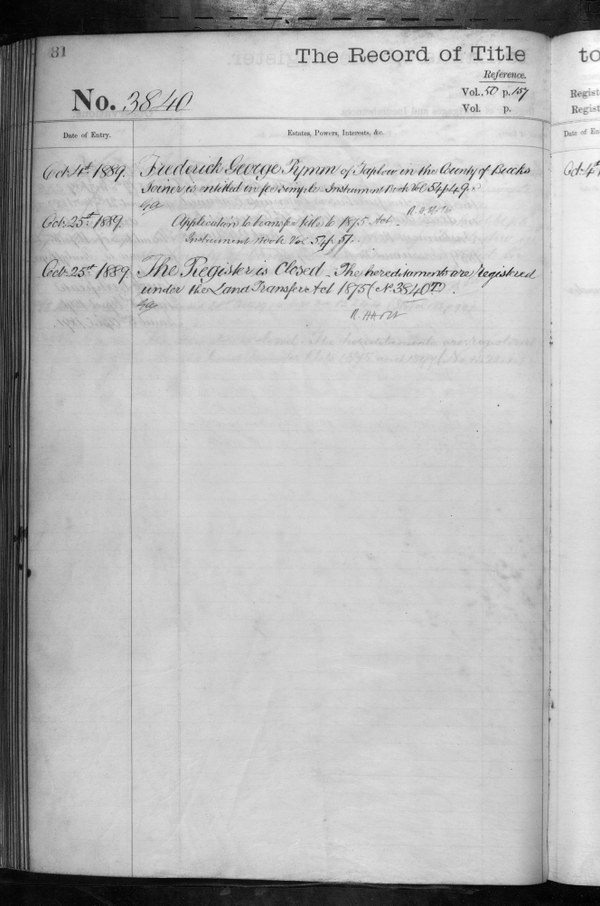 31
The Record of Title
to
Reference.
No. 3840
Vol. 50 p. 157
Vol. p.
Regist
Regist
Date of Entry.
Estates, Powers, Interests, &c.
Date of En
Oct. 4th 1889. Frederick George Pymm of Taplow in the County of Bucks
is entitled in fee simple. Instrument Book Vol 54 p 49.
Oct. 4th 1
Oct. 25th 1889. Application to transfer title to 1875 Act.
Instrument Book Vol 54 p
Oct. 25th 1889 The Register is Closed. The hereditaments are registered
under the Land Transfer Act 1875 (No 3840
R. Holt